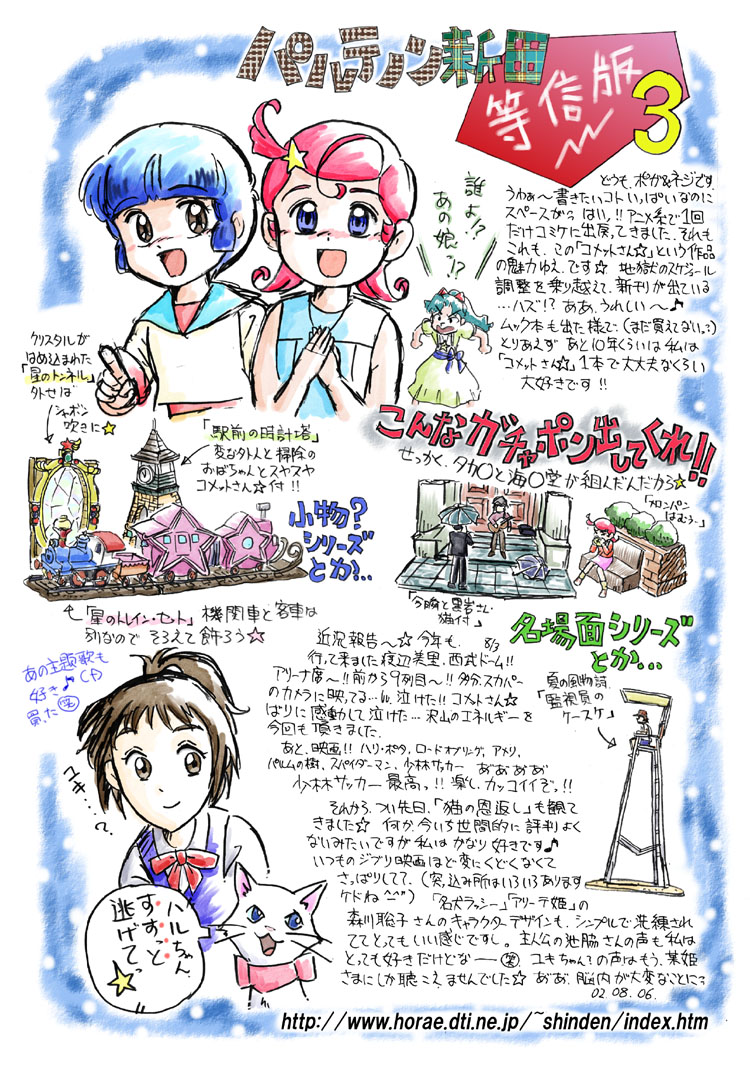 パルテノン新田
等信版
3
どうも、ポカ&ネジです。
うわぁ〜書きたいコトいっぱいなのに
スペースがっ はい!! アニメ系で1回
だけコミケに出戻ってきました。それも
これも、この「コメットさん☆」という作品
の魅力ゆえ。です☆ 地獄のスケジュール
調整を乗り越えて、新刊が出ている
…ハズ!? ああ、うれしい〜♪
ムック本も出た様で、(まだ買えないっ?)
とりあえず あと10年くらいは私は
「コメットさん☆」1本で大丈夫なくらい
大好きです!!
誰よ!?
あの娘っ!?
クリスタルが
はめ込まれた
「星のトンネル」
外せば
シャボン
吹きに☆
「駅前の時計塔」
変な外人と掃除の
おばちゃんとスヤスヤ
コメットさん☆付!!
小物?
シリーズ
とか…
こんなガチャポン出してくれ!!
せっかく、タカ〇と海〇堂が組んだんだから☆
「メロンパン
はむぅ〜」
「今晩と黒岩さん
猫付」
名場面シリーズ
とか…
も「星のトレイン・セット」 機関車と客車は
別なので そろえて飾ろう☆
あの主題歌も
好き♪ CDも
買った(笑)
ユキ…?
近況報告〜☆ 今年も、8/3
行って来ました渡辺美里、西武ドーム!!
アリーナ席〜!! 前から9列目〜!! 多分、スカパー
のカメラに映ってる…w 泣けた!! コメットさん☆
ばりに感動して泣けた… 沢山のエネルギーを
今回も頂きました。
あと、映画!! ハリ・ポタ、ロードオブリング、アメリ、
パルムの樹、スパイダーマン、少林サッカー あ゛あ゛あ゛あ゛
少林サッカー 最高っ!! 楽し、カッコイイぞっ!!
それから、つい先日、「猫の恩返し」も観て
きました☆ 何か、今いち世間的に評判よく
ないみたいですが私はかなり好きです♪
いつものジブリ映画ほど変にくどくなくて
さっぱりしてて、(突っ込み所はいろいろあります
ケドね^^") 「名犬ラッシー」「アリーテ姫」の
森川聡子さんのキャラクターデザインも、シンプルで洗練され
ててとてもいい感じですし。主人公の池脇さんの声も私は
とっても好きだけどなー(笑) ユキちゃん?の声はもう、某姫
さまにしか聴こえませんでした☆ あ゛あ゛、脳内が大変なことに?
02.08.06.
夏の風物詩、
「監視員の
ケースケ」
ハルちゃん、
すすっと
逃げてっ
☆
http://www.horae.dti.ne.jp/~shinden/index.htm